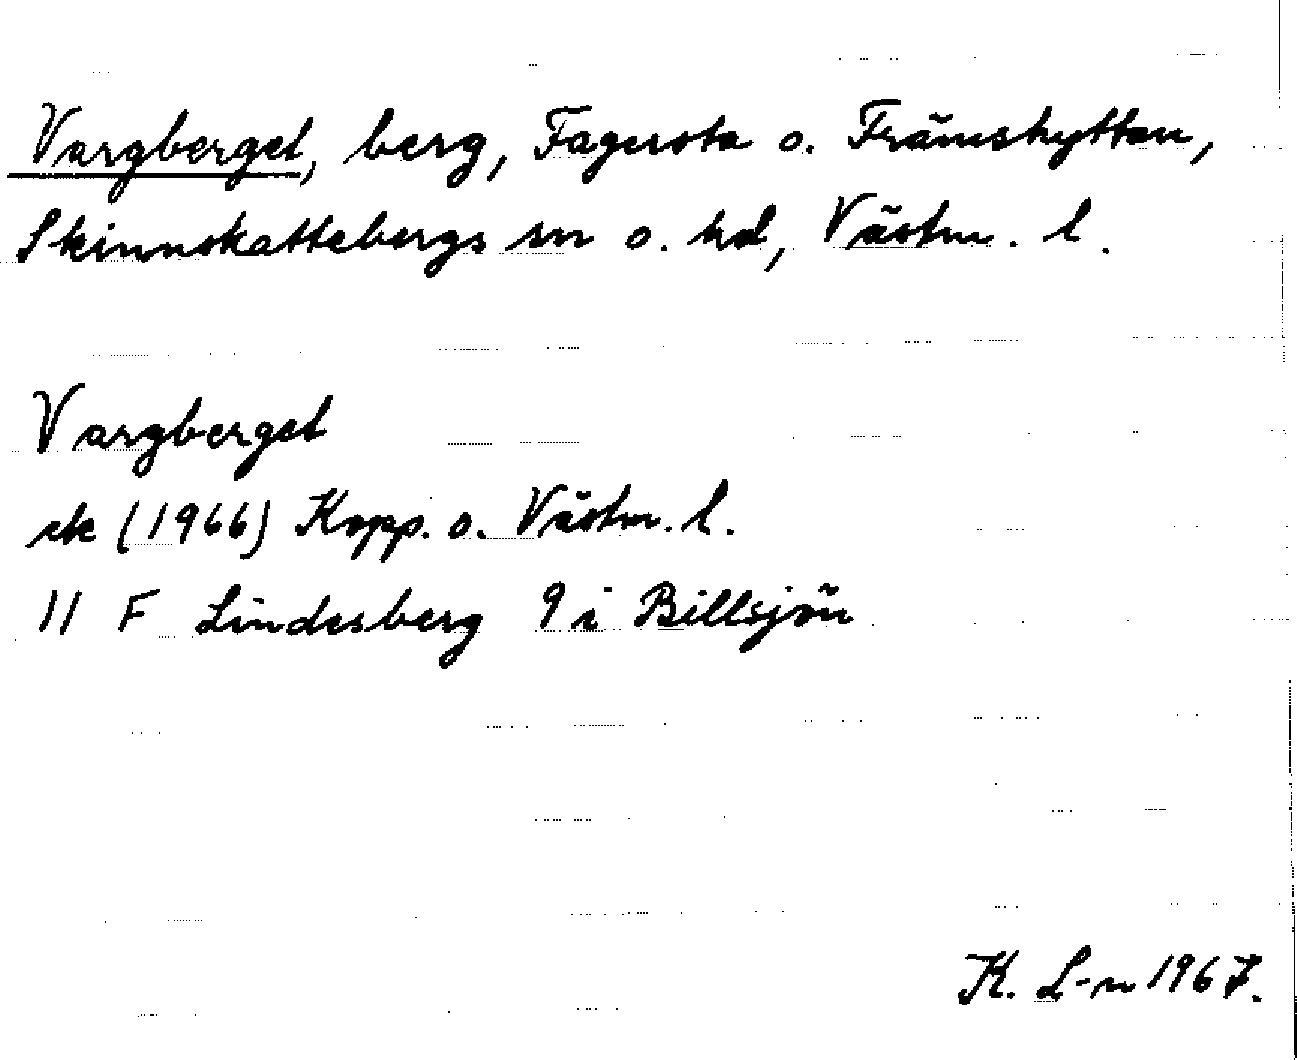 Vargberget, berg, Fagersta o. Främshyttan,
Skinnskattebergs sn o. hd, Västm. l.
Vargberget
ek (1966) Kopp. o. Västm. l.
11 F Lindesberg 9 i Billsjön
K. L-n 1967.